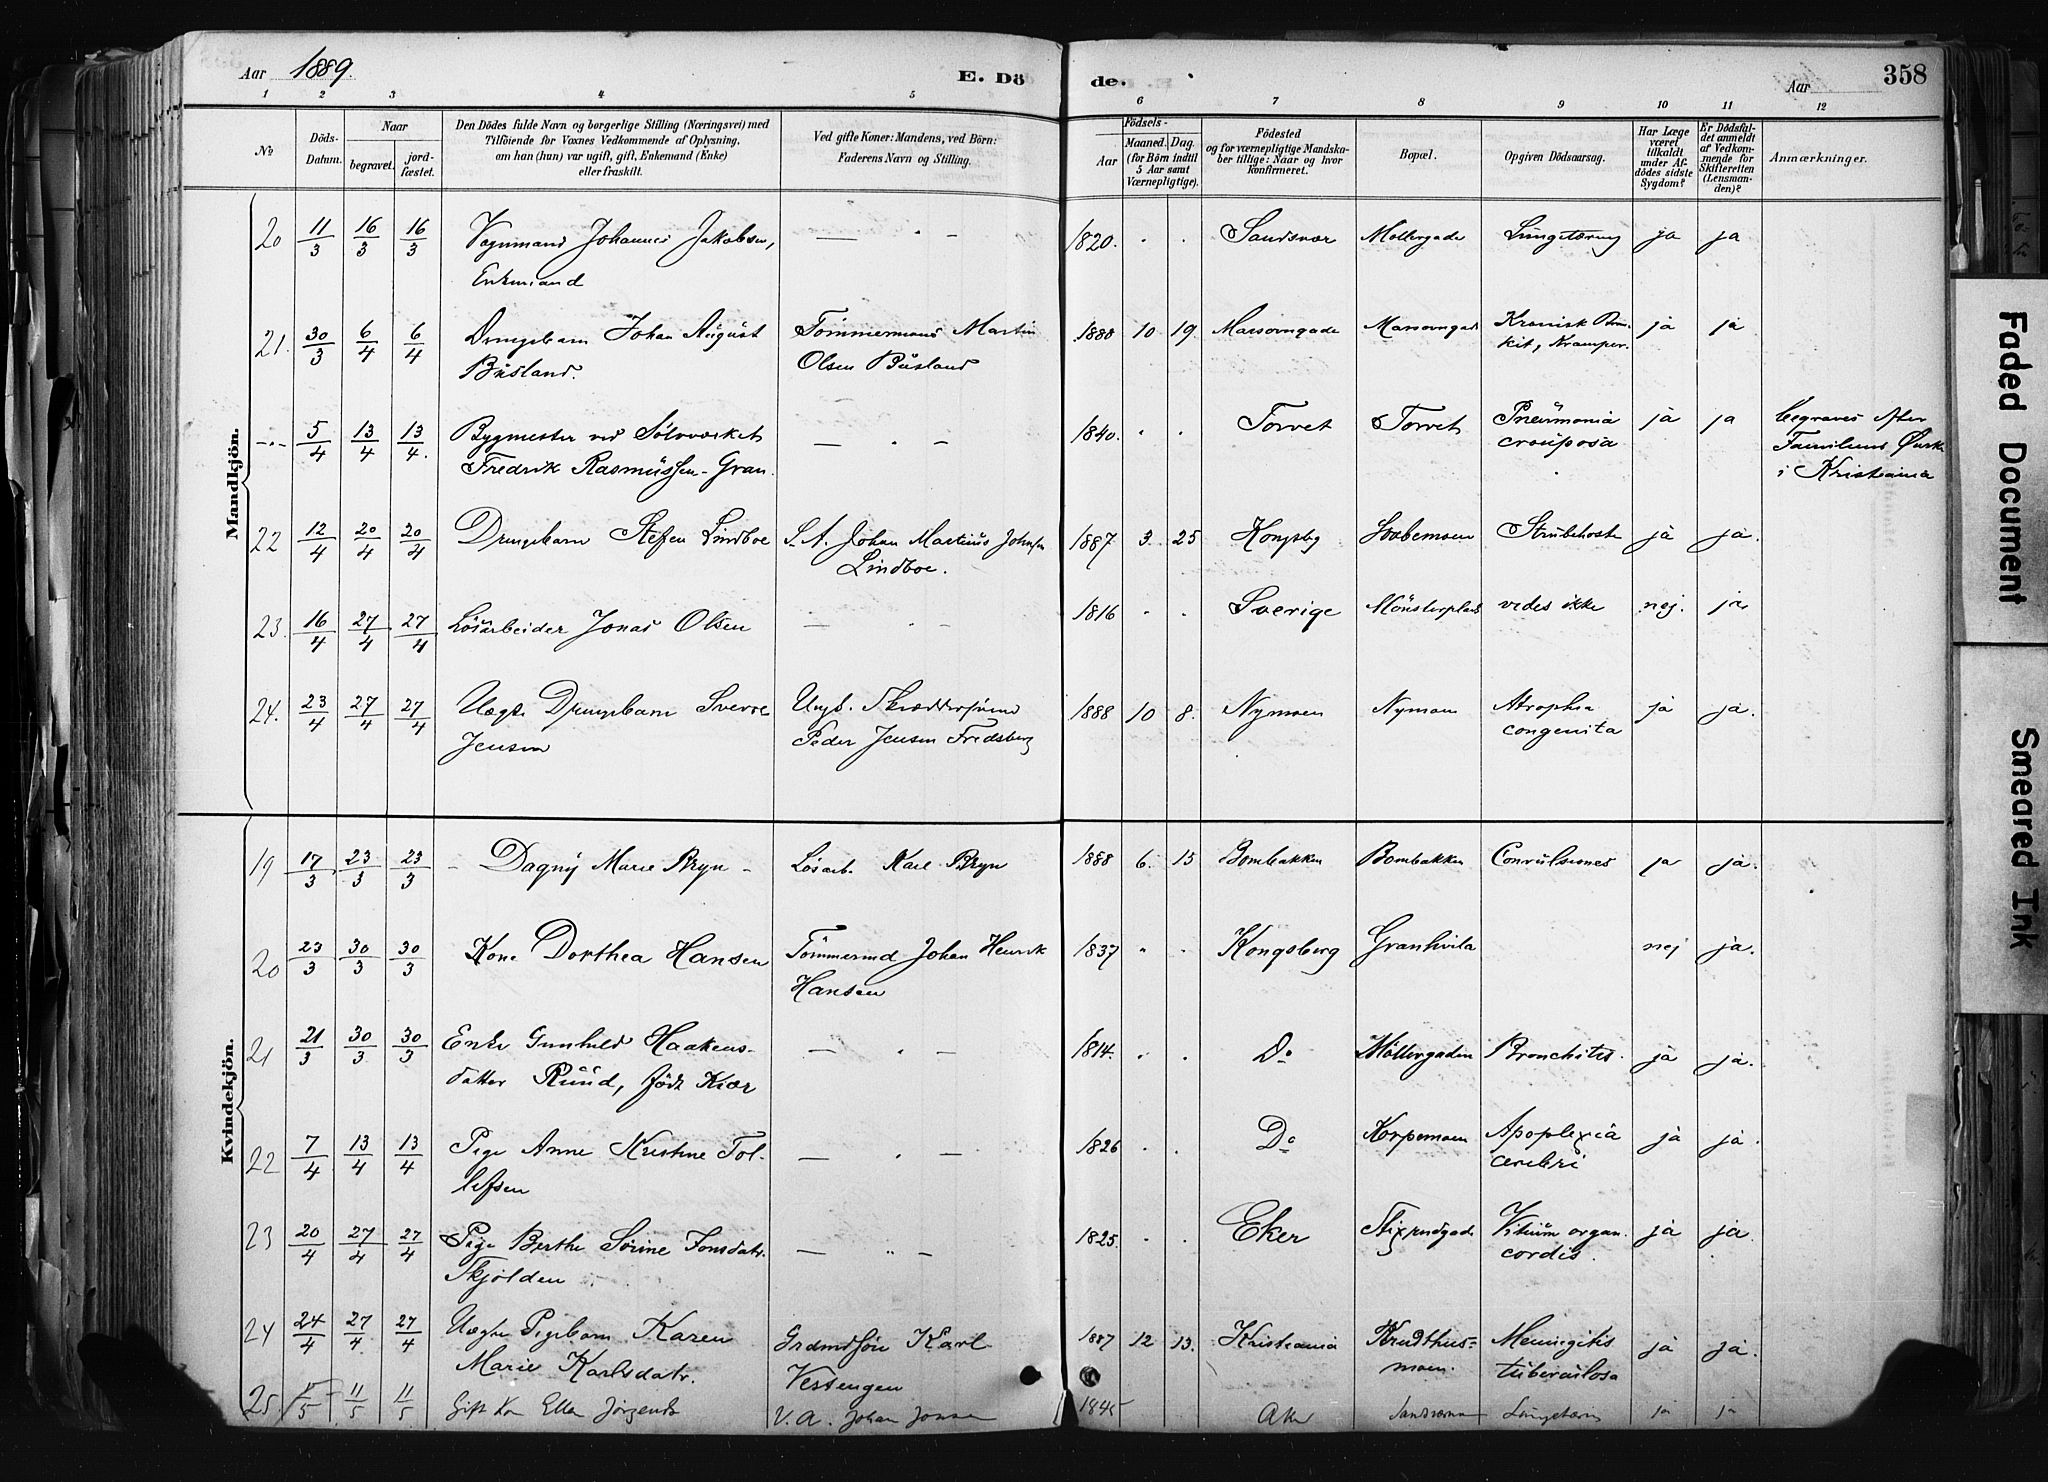 Aar 1889.
E. Dö
de.
Aar
358
1 2 3 4 5 6 7 8 9 10 11 12
No
Döds-Datum.
Naar
begravet.
jord-fæstet.
Den Dödes fulde Navn og borgerlige Stilling (Næringsvei) med
Tilföiende for Voxnes Vedkommende af Oplysning,
om han (hun) var ugift, gift, Enkemand (Enke)
eller fraskilt.
Ved gifte Koner: Mandens, ved Börn:
Faderens Navn og Stilling.
Födsels-
Aar
Maaned. Dag.
(for Börn indtil
5 Aar samt
Værnepligtige).
Födested
og for værnepligtige Mandska-
ber tillige: Naar og hvor
konfirmeret.
Bopæl.
Opgiven Dödsaarsag.
Har Læge
været
tilkaldt
under Af-
dödes sidste
Sygdom?
Er Dödsfal-
det anmeldt
af Vedkom-
mende for
Skifteretten
(Lensman-
den)?
Anmærkninger.
Mandkjön.
20 11/3 16/3 16/3 Johannes Jakobsen, — " — 1820. " " Sandsvær Möllergade Lungetæring ja ja
Enkemand
21. 30/3 6/4 6/4 Drengebarn Johan August Tömmermand Martin 1888 10 19. ja ja
Büsland. Olsen Büsland
-"- 5/4 13/4 13/4. Bygmester ved Sölvværket — " — 1840. " " Torvet Torvet Pneumonia ja ja begraves
Fredrik Rasmussen-Gran. crouposa Familiens
i Kristiania
22 12/4 20/4 20/4 Drengebarn Steffen Lindboe S. A. Johan Martinius Johnsen 1887 3. 25 Kongsbg Strubehoste ja ja.
Lindboe.
23. 16/4 27/4 27/4 Lösarbeider Jonas Olsen — " — 1816 " " Sverige vides ikke nej. ja
24. 23/4 27/4 27/4 Uægte Drengebarn Sverre Ungk. 1888 10 8. Nymoen Nymoen Atrophia ja ja.
Jensen Peder Jensen Fredsberg congenita
Kvindekjön.
19 17/3 23/3 23/3 - Dagny Marie Bryn - Lösarb. Karl Bryn 1888 6. 15 Bombakken Bombakken Convulsiones ja ja.
20 23/3 30/3 30/3 Kone Dorthea Hansen Tömmermd Johan Henrik 1837 " " Kongsberg Granhvila nej ja.
Hansen
21 21/3 30/3 30/3 Enke Gunhild Haakens- — " — 1814. " " Do Möllergaden Bronchitis. ja ja.
datter Ruud, födt Kiær
22 7/4 13/4 13/4 Pige Anne Kristine Tol- — " — 1826 " " Do Korpemoen Apoplexia ja ja.
lefsen cerebri
23 20/4 27/4 27/4 Pige Berthe Sörine Tonsdatr. — " — 1825. " " Eker Vitium organ. ja ja.
Skjölden cordis.
24 24/4 27/4 27/4 Uægte Pigebarn Karen Karl 1887 12 13. Kristiania Krudthus- Meningitis ja ja.
Marie Karlsdatr. Vestengen moen. tuberculosa
25. 11/5 11/5 Gift Ko Ellen V. A. Johan Jonsen 1845 ja ja
Faded Document
Smeared Ink